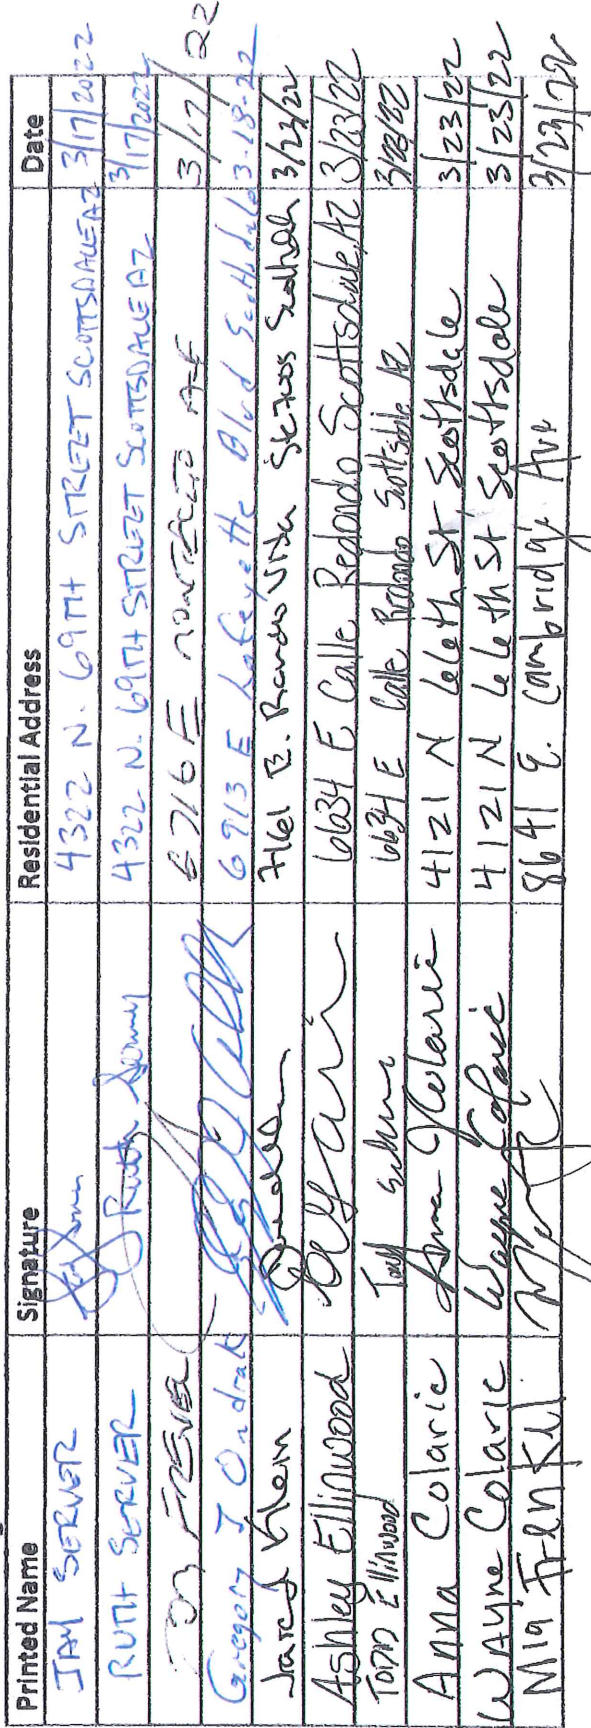 Printed Name Signature Residential Address Date
JAY SERVER 4322 N. 69TH STREET SCOTTSDALE AZ 3/17/2022
RUTH SERVER Ruth 4322 N. 69TH STREET SCOTTSDALE AZ 3/17/2022
6716 E MONTECITO AVE 3/17/22
Gregory J Ondrak 6913 E Lafayette Blvd Scottsdale 3-18-22
Jared Klein 7161 E. Rancho Vista 3/23/22
Ashley Ellinwood 6634 E Calle Redondo Scottsdale, AZ 3/23/22
TODD Ellinwood 6634 E Calle Redondo Scottsdale AZ 3/23/22
Anna Colaric Anna J Colaric 4121 N 66th St, Scottsdale 3/23/22
WAYne Colaric Wayne Colaric 4121 N 66th St Scottsdale 3/23/22
Mia Frenkel 8641 E. Cambridge Ave 3/23/22